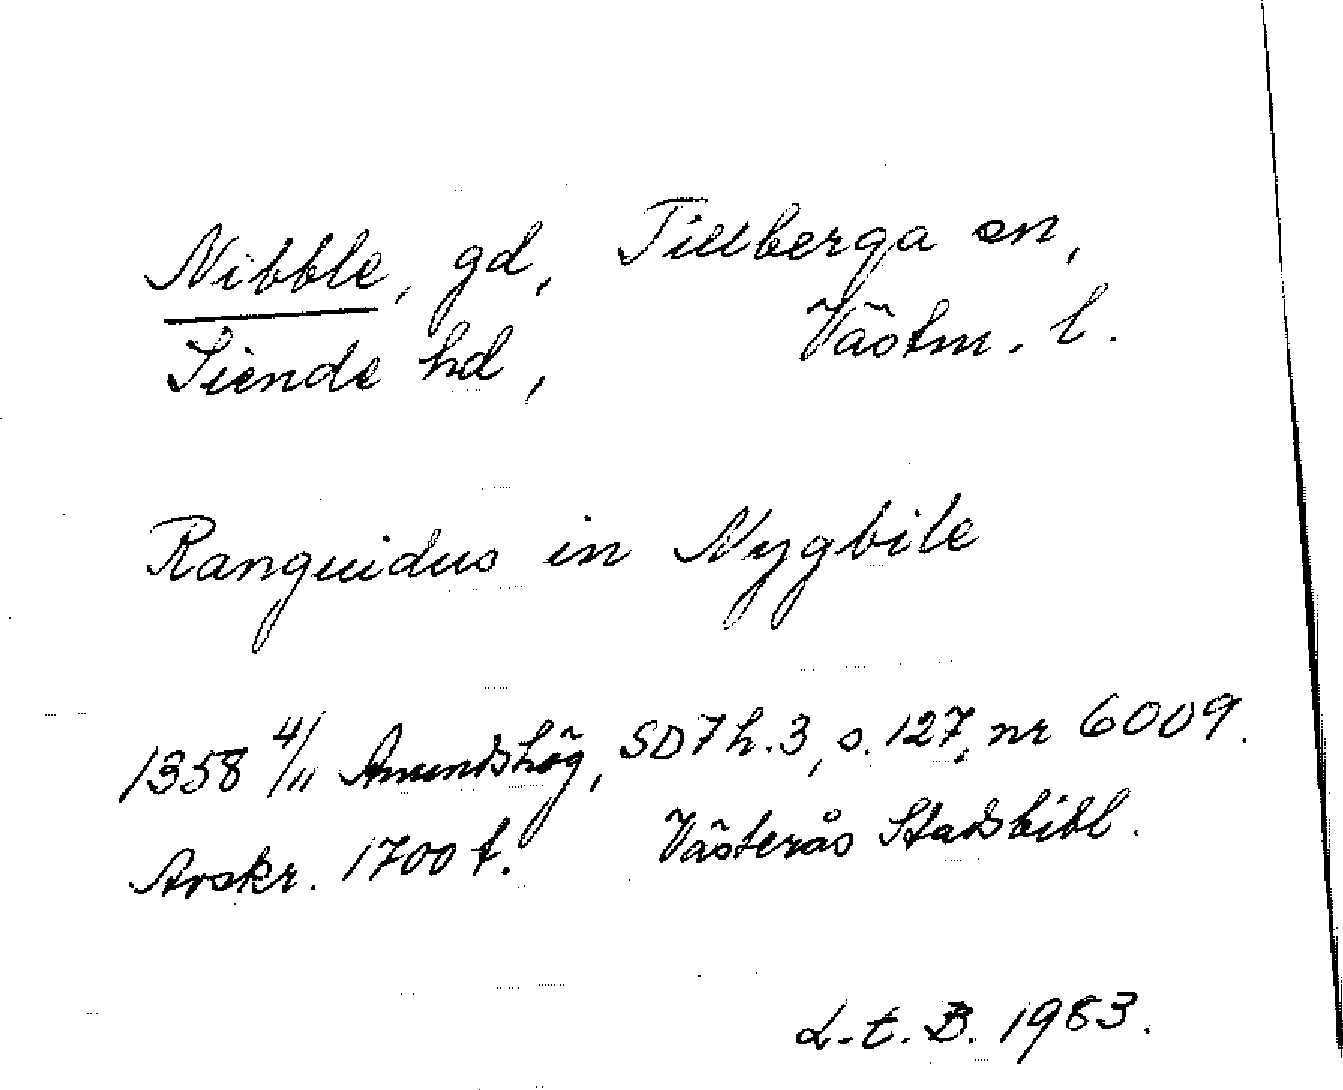 Nibble, gd, Tillberga sn,
Siende hd, Västm. l.
Ranguidus in Nygbile
1358 4/11 Amundshög, SD 7 h. 3, s. 127, nr 6009.
Avskr. 1700 t. Västerås Stadsbibl.
L. t. B. 1983.